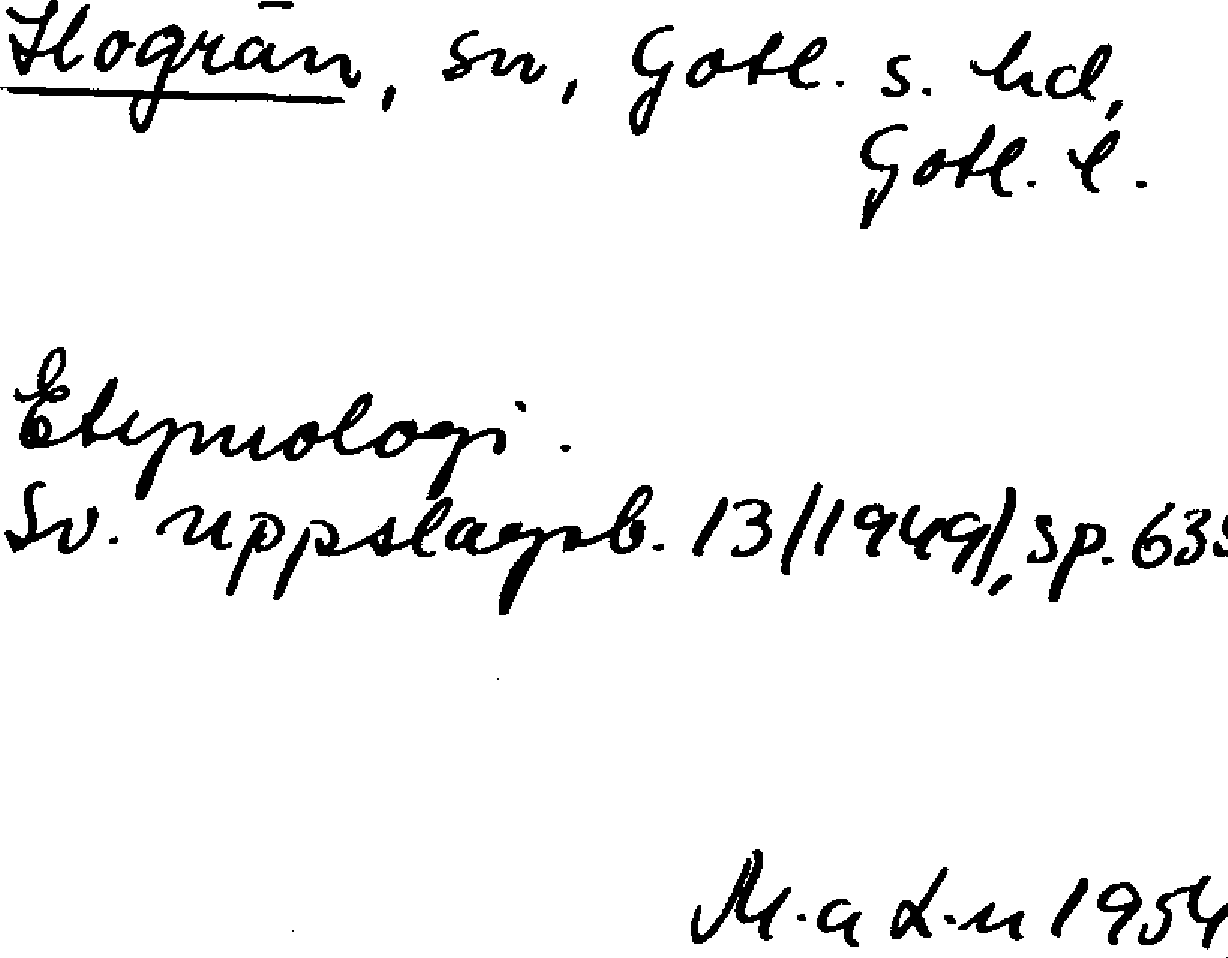 Hogrän, sn, Gotl. s. hd,
Gotl. l.
Etymologi.
Sv. uppslagsb. 13 (1949), sp. 635
M.a L.n 1954